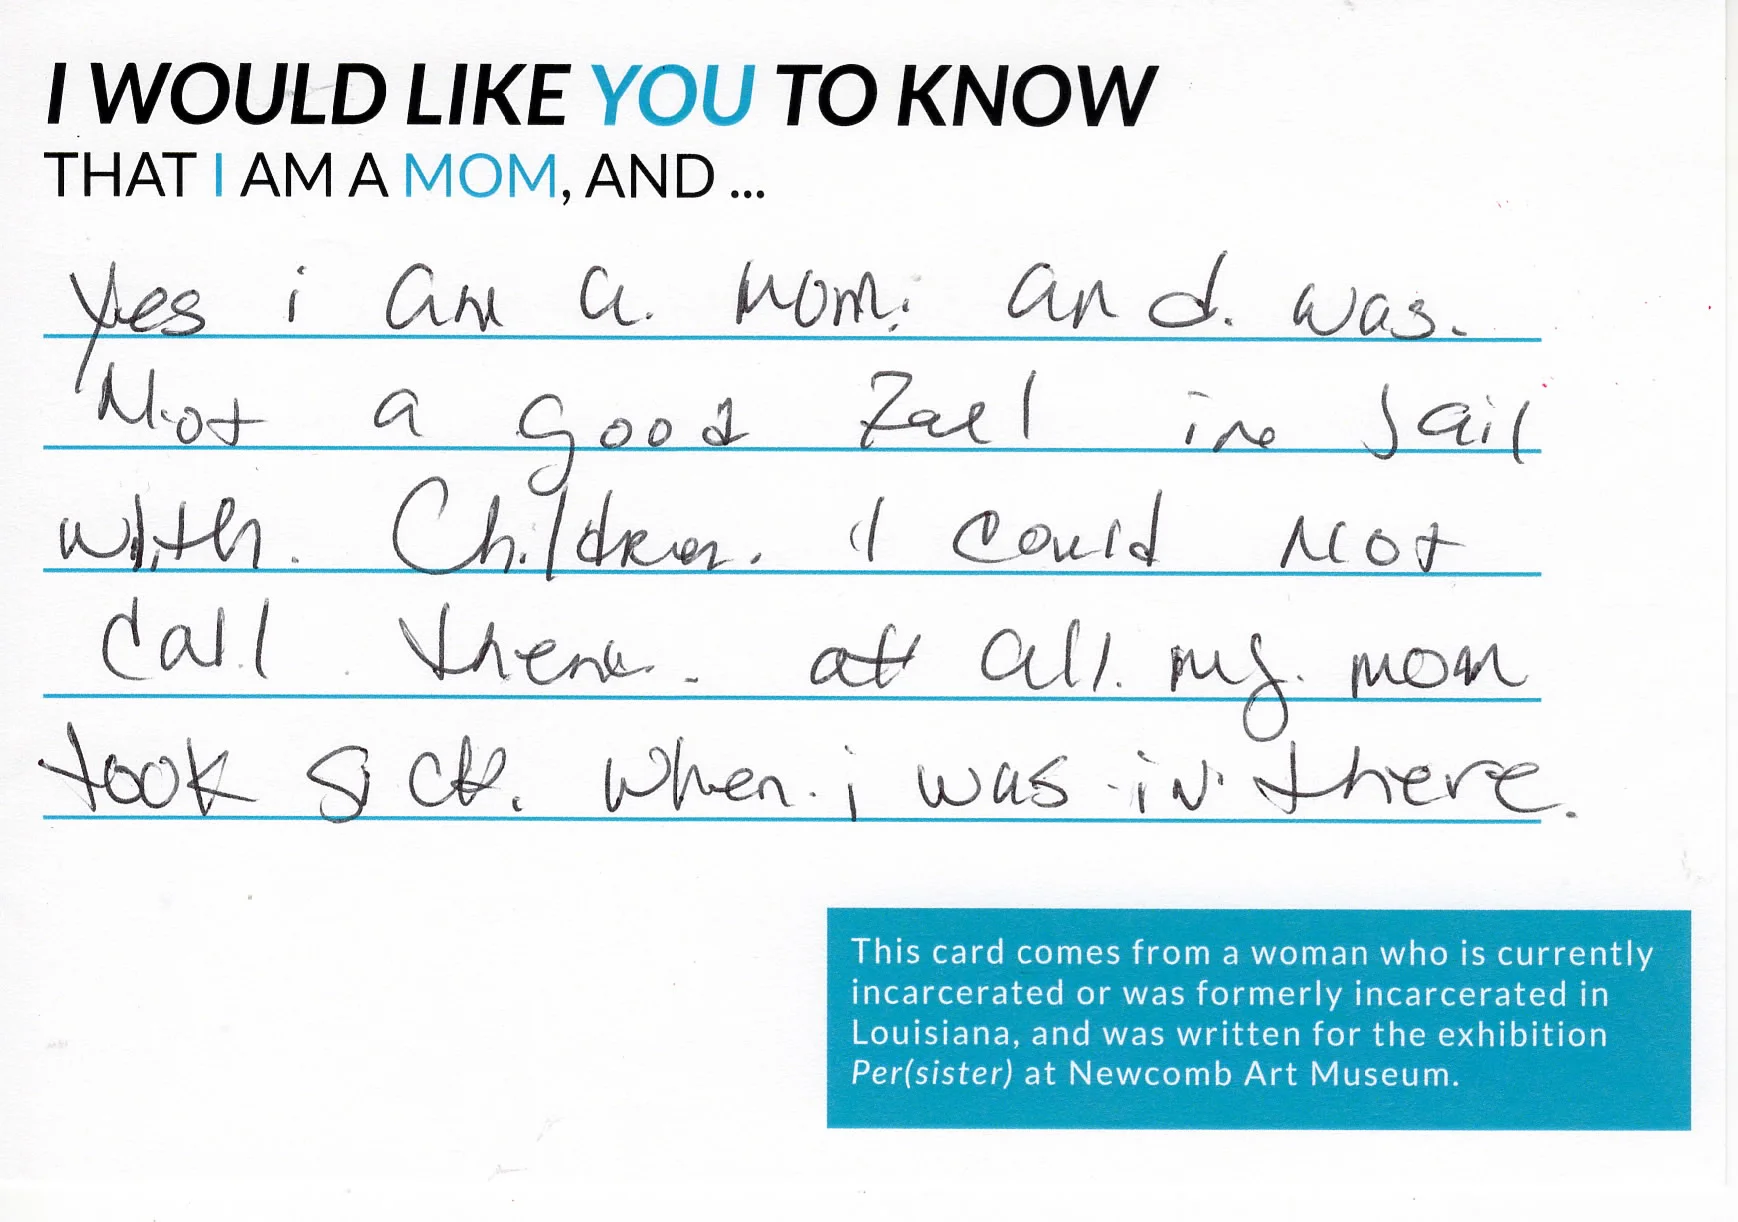 I WOULD LIKE YOU TO KNOW
THAT I AM A MOM, AND ...
Yes i am a. mom. and. was.
Not a good Zael in Jail
with. Children. I could Not
Call them. at all. my. mom
took sick. when. i was in there.
This card comes from a woman who is currently
incarcerated or was formerly incarcerated in
Louisiana, and was written for the exhibition
Per(sister) at Newcomb Art Museum.